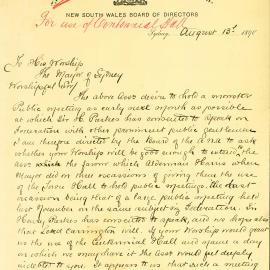 NEW SOUTH WALES BOARD OF DIRECTORS
For use of Centennial Hall
Sydney, August 13th 1890
To His Worship
The Mayor of Sydney
Worshipful Sir,
The above Assn desire to hold a monster
Public meeting as early next month as possible
at which Sir H Parkes has consented to speak on
Federation with other prominent public gentlemen
I am therefore directed by the Board of the A.N.A to ask
whether your Worship will be good enough to extend the
Assn the favour which Alderman Harris when
Mayor did on three occasions of giving them the use
of the Town Hall to hold public meetings, the last
occasion being that of a large public meeting held
last November on the same subject as Federation. Sir
Henry Parkes has consented to speak, and we hope also
that Lord Carrington will. If your Worship would grant
us the use of the Centennial Hall and spare a day
on which we may have it the Assn would feel deeply
indebted to you. It appears to us that such a meeting